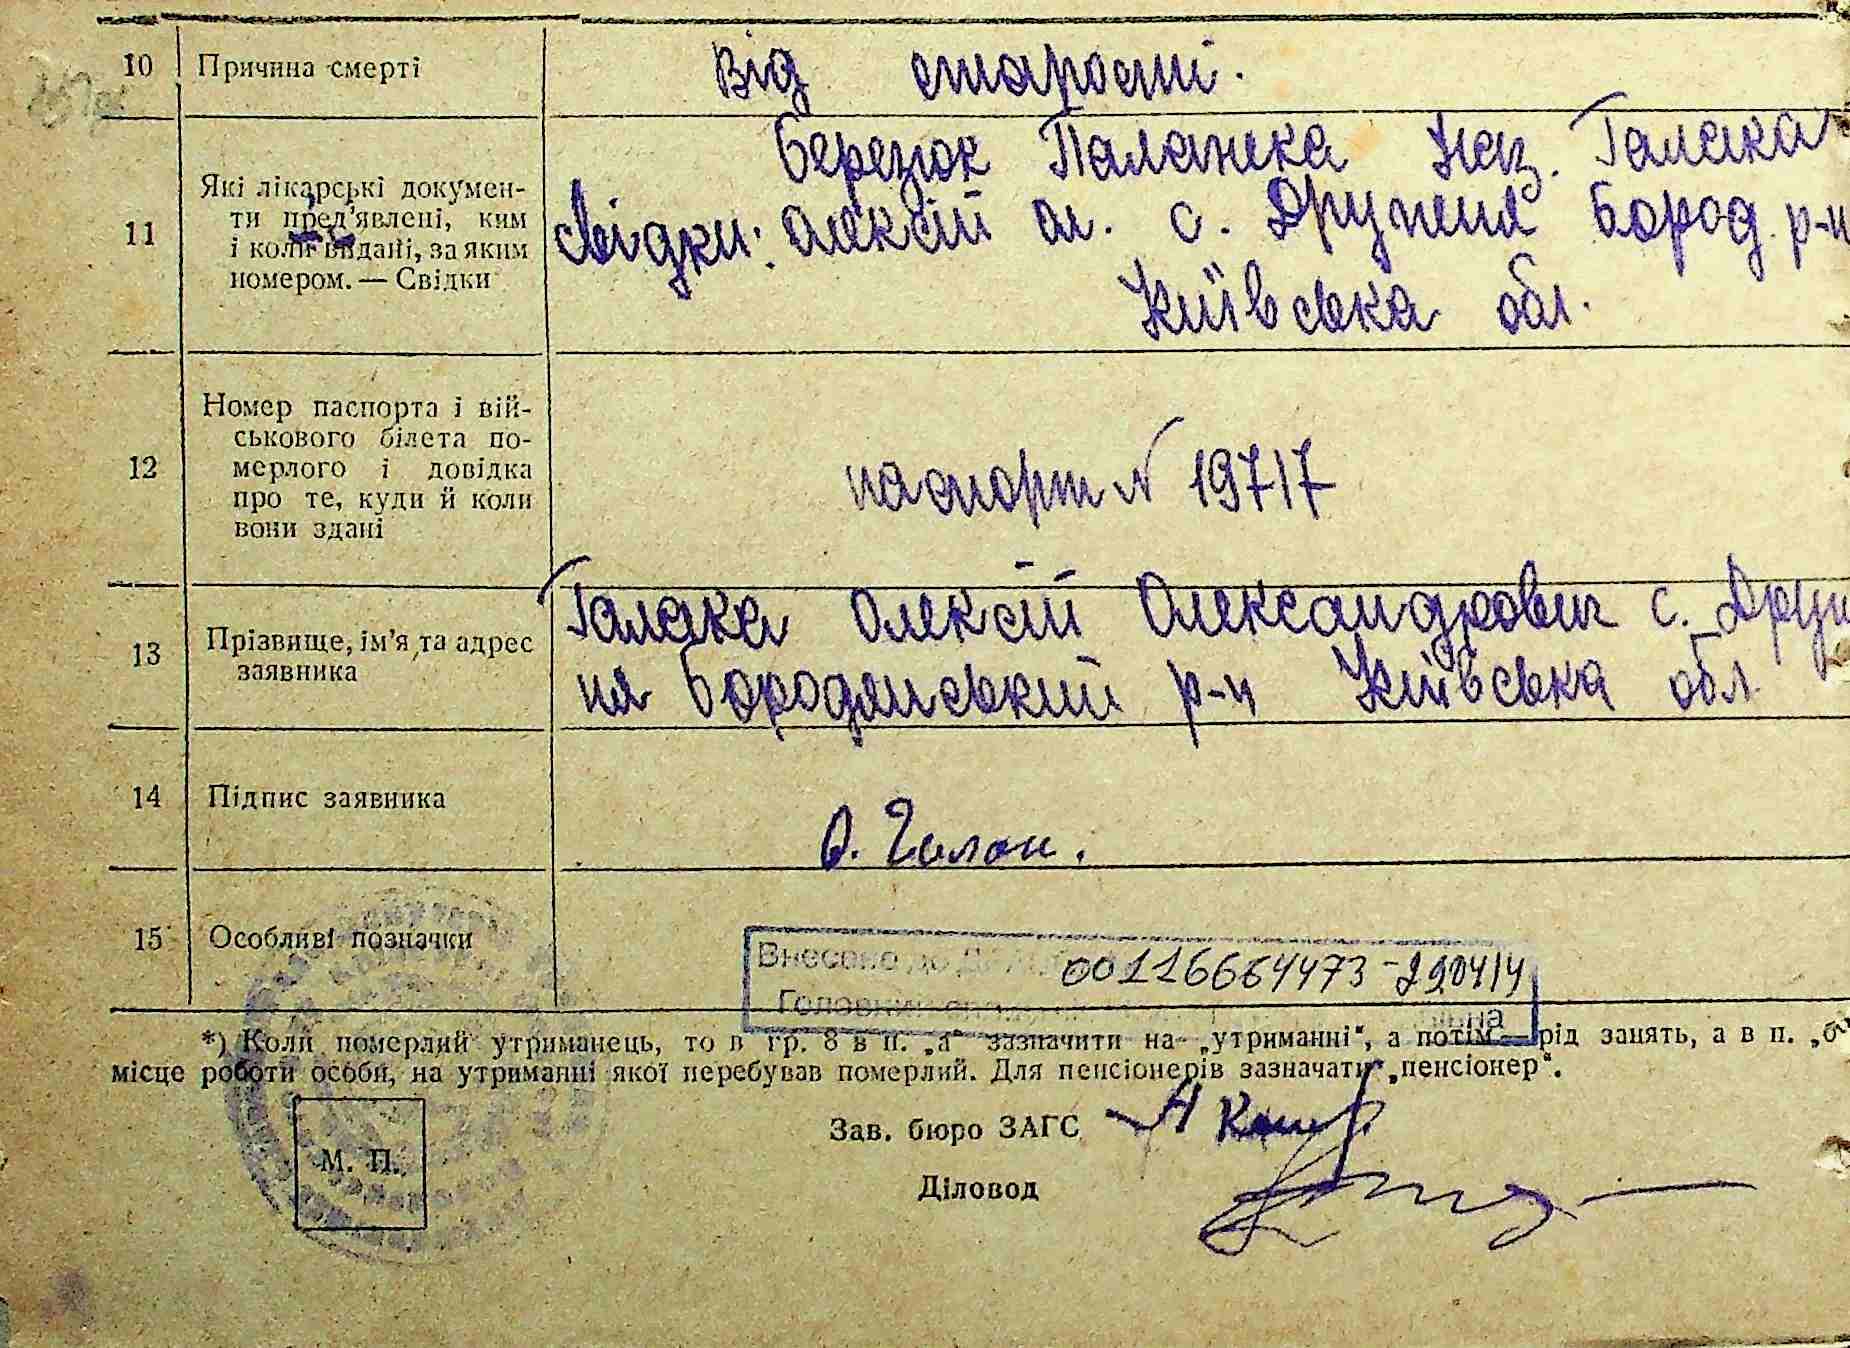 10 Причина смерті від старости.
11 Які лікарські докумен-
ти пред'явлені, ким
і коли видані, за яким
номером. — Свідки
Березюк Палажка Наз. Галака
свідки: Олексій ол. с. Друпня Бород. р-н
Київська обл.
12 Номер паспорта і вій-
ськового білета по-
мерлого і довідка
про те, куди й коли
вони здані
паспорт N 19717
13 Прізвище, ім'я та адрес
заявника
Галака Олексій Олександрович с. Друп
ня Бородянський р-н Київська обл
14 Підпис заявника
15 Особливі позначки
Внесено до 00116664473-290414
*) Коли померлий утриманець, то в гр. 8 в п. „а“ зазначити на „утриманні“, а потім — рід занять, а в п. „б“
місце роботи особи, на утриманні якої перебував померлий. Для пенсіонерів зазначати „пенсіонер“.
Зав. бюро ЗАГС
М. П.
Діловод